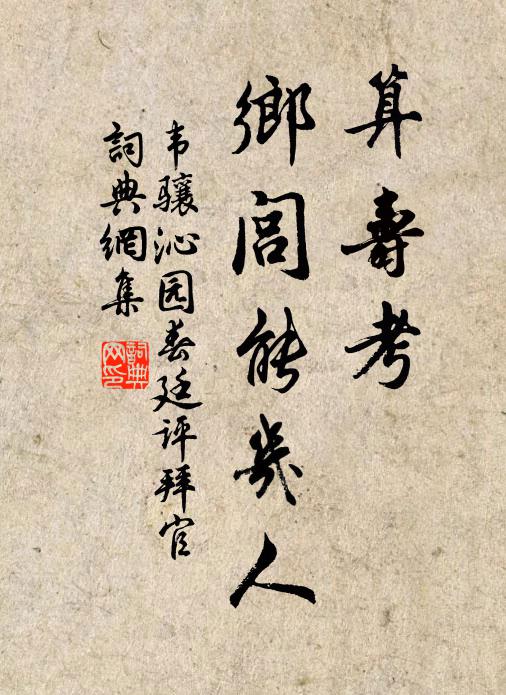 算壽考
鄉閭能幾人
韦骧沁园春廷评拜官
詞典網集
詞典
网印